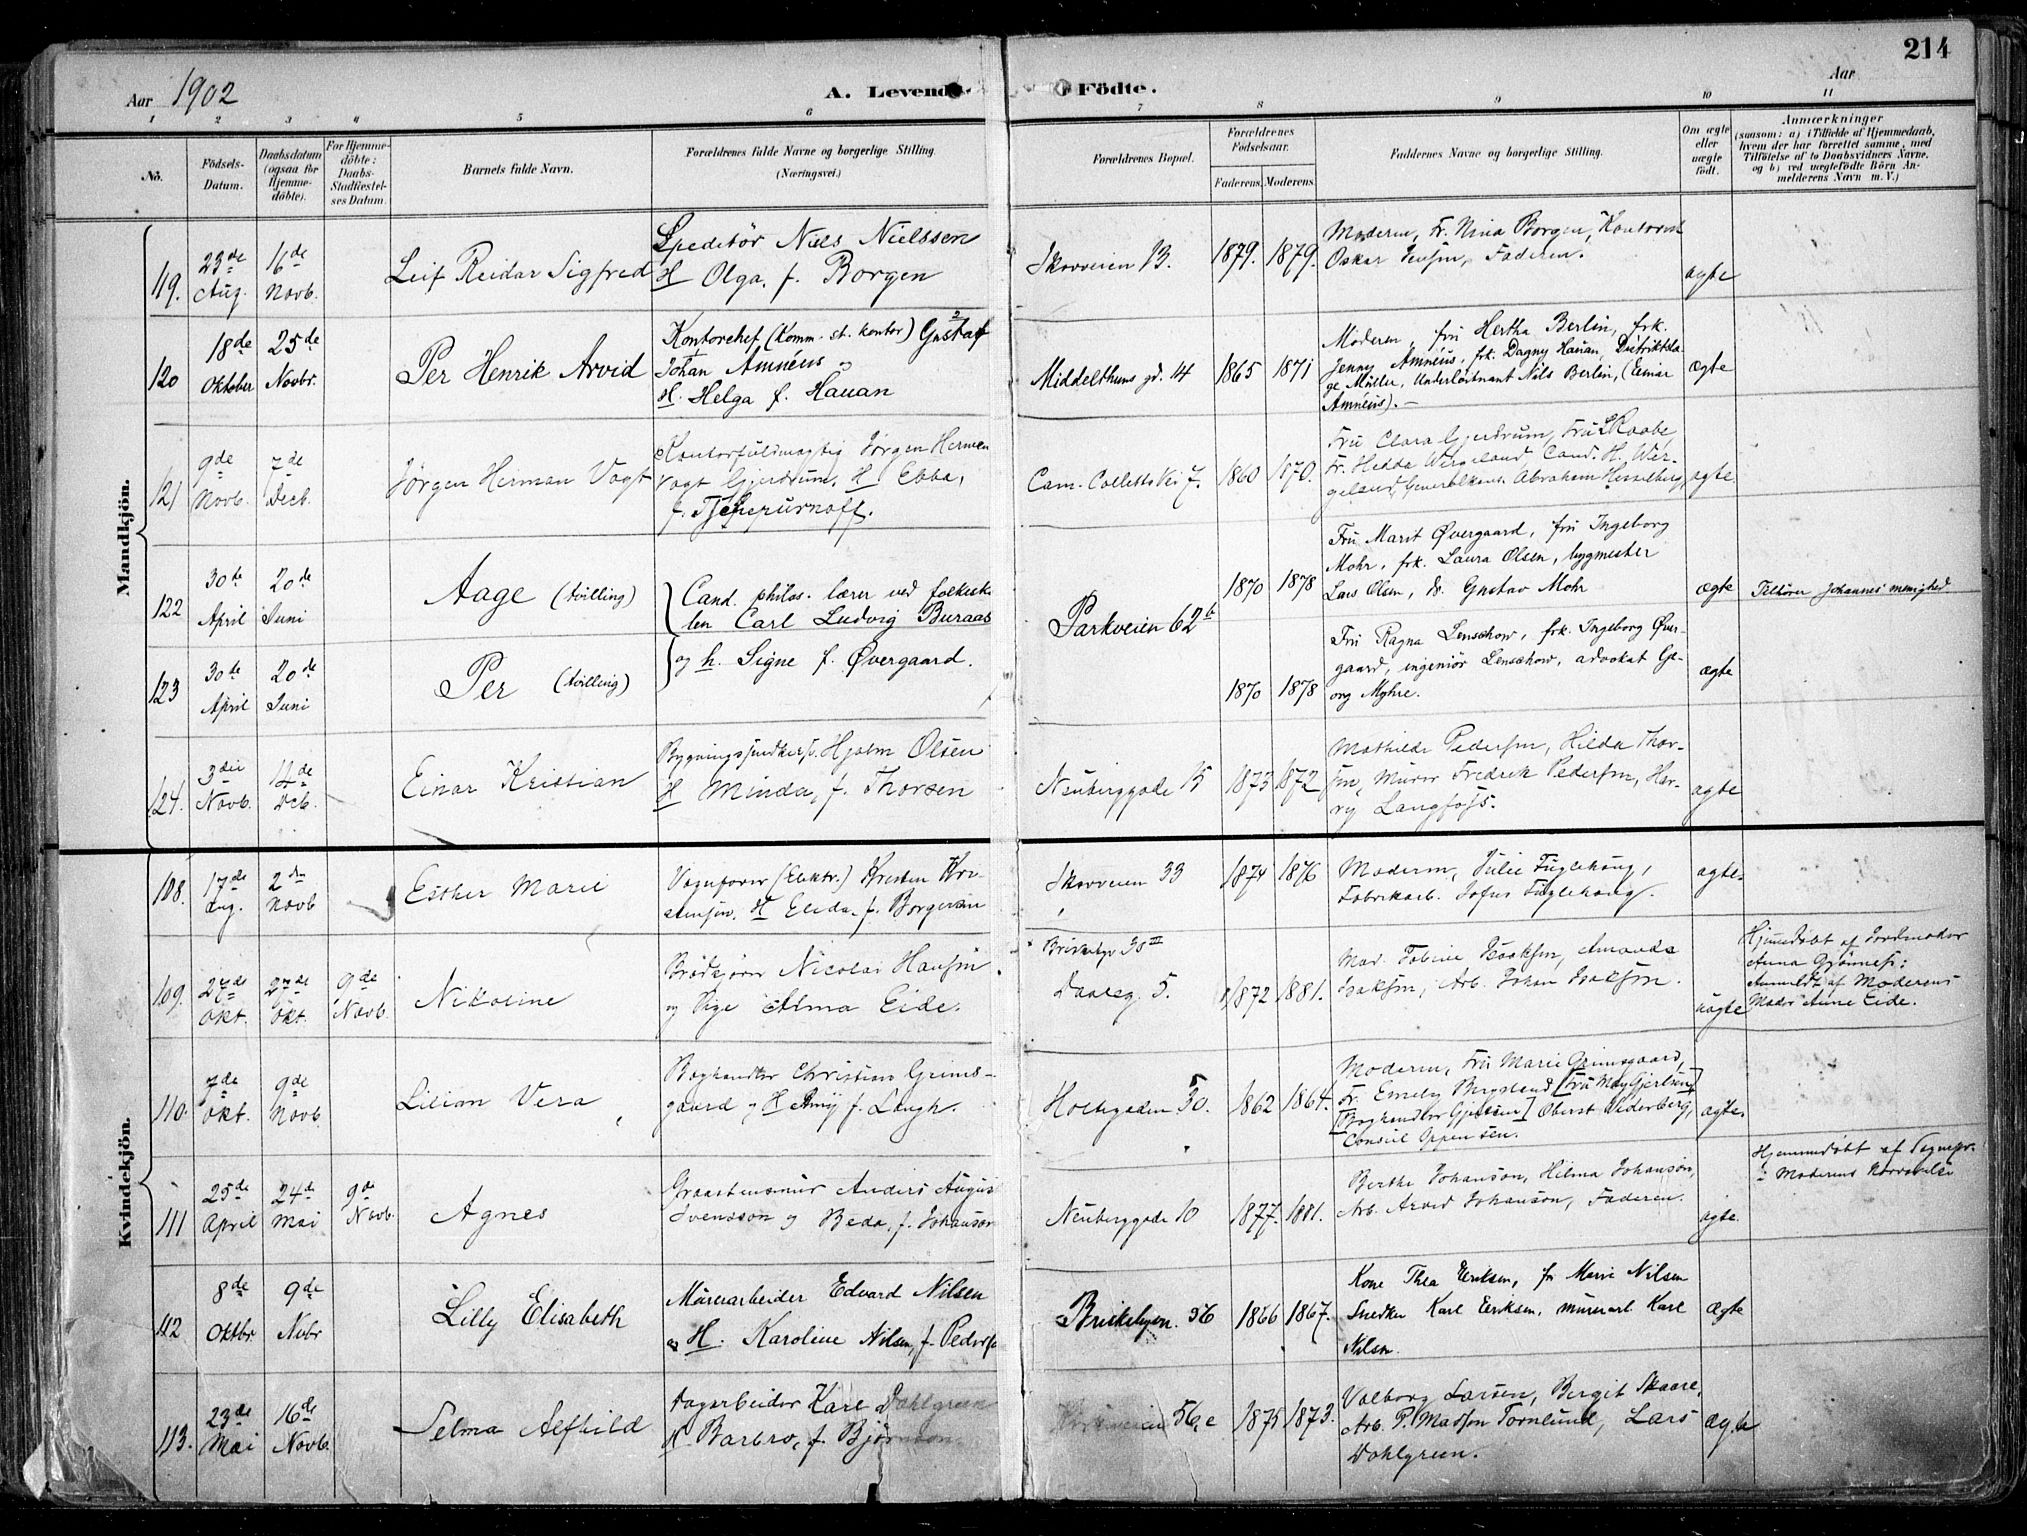 214
Aar 1902
A. Levende Födte.
Aar
1 2 3 4 5 6 7 8 9 10 11
No.
Födsels-Datum.
Daabsdatum (ogsaa for Hjemme-döbte).
For Hjemme-döbte: Daabs-Stadfæstel-ses Datum.
Barnets fulde Navn.
Forældrenes fulde Navne og borgerlige Stilling.
(Næringsvei.)
Forældrenes Bopæl.
Forældrenes Födselsaar.
Faderens. Moderens.
Faddernes Navne og borgerlige Stilling.
Om ægte eller uægte födt.
Anmærkninger
(saasom: a) i Tilfælde af Hjemmedaab,
hvem der har forrettet samme, med
Tilföielse af to Daabsvidners Navne.
og b) ved uægtefödte Börn An-
melderens Navn m. V.)
Mandkjön.
119. 23de Aug. 16de Novb.
Leif Reidar Sigfred
Speditör Niels Nielssen
H Olga, f. Borgen
Skovveien 13. 1879. 1879.
Moderen, Fr. Nina Borgen, Kontorist
Oskar Jensen, Faderen.
ægte
120 18de Oktober 25de Novbr.
Per Henrik Arvid
Kontorchef (Komm. st. kontor) Gustaf 2
Johan Amnéus 1 og
H. Helga f. Hauan
Middelthuns gd. 14 1865 1871
Moderen, fru Hertha Berlin, frk.
Jenny Amnéus, frk. Dagny Hauan, Distriktslæ-
ge Müller, Underløitnant Nils Berlin, (Einar
Amnéus). —
ægte
121 9de Novb. 7de Decb.
Jørgen Herman Vogt
Kontorfuldmægtig Jørgen Herman
Vogt Gjerdrum, H Ebba,
f. Tschepurnoff.
Cam. Colletts Vei 7. 1860 1870.
Fru Clara Gjerdrum, Fru L Raabe,
Fr. Hedda Wergeland Cand. H. Wer-
geland, Generalkons. Abraham Hesselberg,
ægte
122 30te April 20de Juni
Aage (tvilling)
Cand. philos. lærer ved folkesko
len Carl Ludvig Buraas
Parkveien 62b 1870 1878
Fru Marit Øvergaard, fru Ingeborg
Mohr, frk. Laura Olsen, bygmester
Lars Olsen, dr. Gustav Mohr
ægte
Tilhører Johannes menighed.
123 30te April 20de Juni
Per (tvilling)
og h. Signe f. Øvergaard.
1870 1878
Fru Ragna Lenschow, frk. Ingeborg Øver-
gaard, ingeniør Lenschow, advokat Ge-
org Myhre.
ægte
124. 3die Novb. 14de Dcb.
Einar Kristian
Bygningssnedker f. Hjalm Olsen
H Minda, f. Thorsen
Neuberggade 15 1873 1872
Mathilde Pedersen, Hilda Thor-
sen, Murer Fredrik Pedersen, Har-
ry Langfoss.
ægte
Kvindekjön.
108. 17de Aug. 2den Novb
Esther Marie
Vognfører (Elektr.) Kristen Kri-
stensen, H Elida, f. Borgersen
Skovveien 33 1874 1876
Moderen, Julie Fuglehaug,
Fabrikarb. Sofus Fuglehaug.
ægte.
109. 27de Okt. 27de Okt. 9de Novb.
Nikoline
Brødkjører Nicolai Hansen
og Pige Alma Eide.
Briskebyv 38 III
Daasg. 5. 1872 1881.
Mad. Tobine Isaksen, Amanda
Isaksen, Arb. Johan Isaksen.
uægte
Hjemmedøbt af Jordmoder
Anna Gjønnes;
Anmeldt af Moderens
Moder Anne Eide.
110. 7de Okt. 9de Novb.
Lilian Vera
Boghandler Christian Grims-
gaard og H Amy f. Laugh.
Holtegaden 30. 1862 1864.
Moderen, Fru Marie Grimsgaard,
Fr. Emely Bergsland [Fru May Gjertsen]
[Boghandler Gjertsen] Oberst Wederberg,
Consul Oppen sen.
ægte.
111 25de April 24de Mai 9de Novb.
Agnes
Graastensmur Anders August
Svensson og Beda, f. Johanson
Neuberggade 10 1877. 1881.
Berthe Johanson, Hilma Johanson,
Arb. Arvid Johanson, Faderen.
ægte.
Hjemmedøbt af Sognepr.
i Moderens Nærværelse
112 8de Oktbr 9de Novbr
Lilly Elisabeth
Murerarbeider Edvard Nilsen
og H. Karoline Nilsen, f. Peders
Briskebyen. 36 1866 1867.
Kone Thea Eriksen, fr Marie Nilsen
Snedker Karl Eriksen, murerarb. Karl
Nilsen.
Ægte
113. 23de Mai 16de Novb.
Selma Alfhild
Dagarbeider Karl Dahlgreen
H Barbro, f. Bjørn
56, c 1875 1873.
Valborg Larsen, Bergit Skaare,
Arb. P. Madsen Tornlund, Lars
Dahlgreen.
ægte